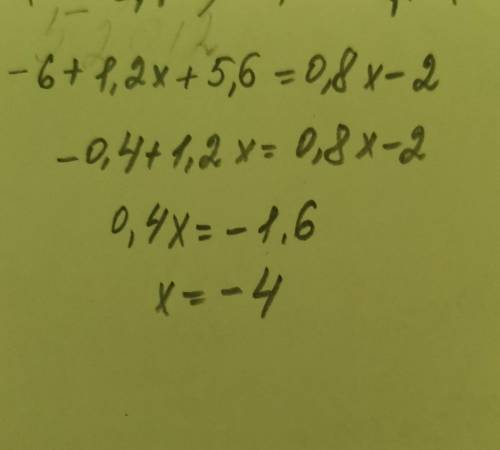 -6+1,2x+5,6=0,8x-2
-0,4+1,2x=0,8x-2
0,4x=-1.6
x=-4